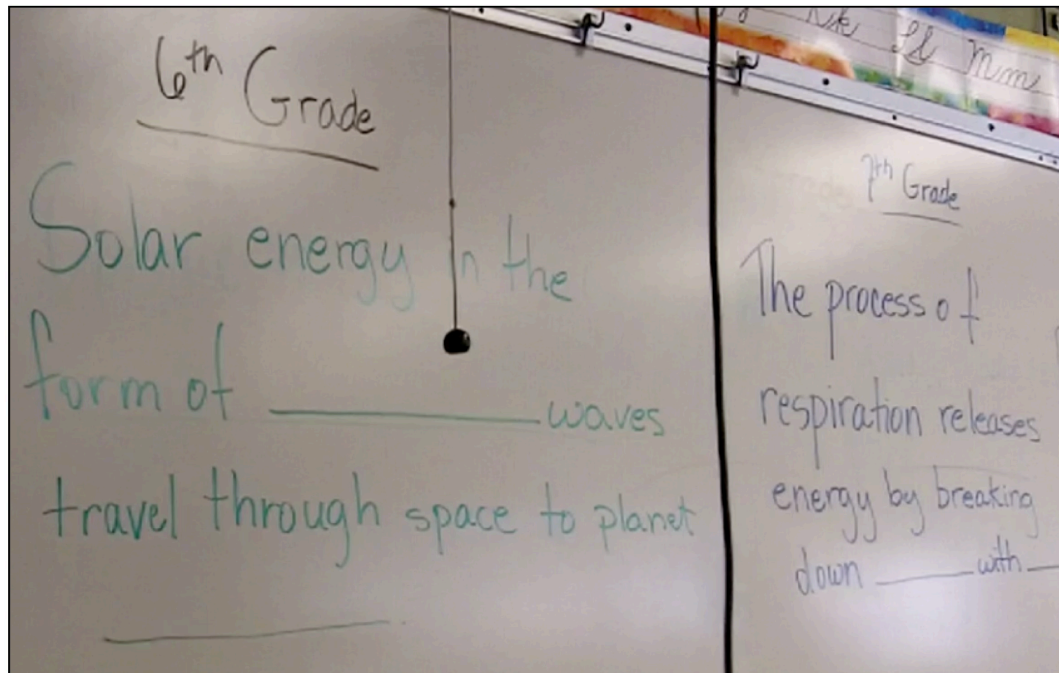 6th Grade
Solar energy in the
form of ________ waves
travel through space to planet
________
Kk Ll Mm
7th Grade
The process of
respiration releases
energy by breaking
down ____ with __